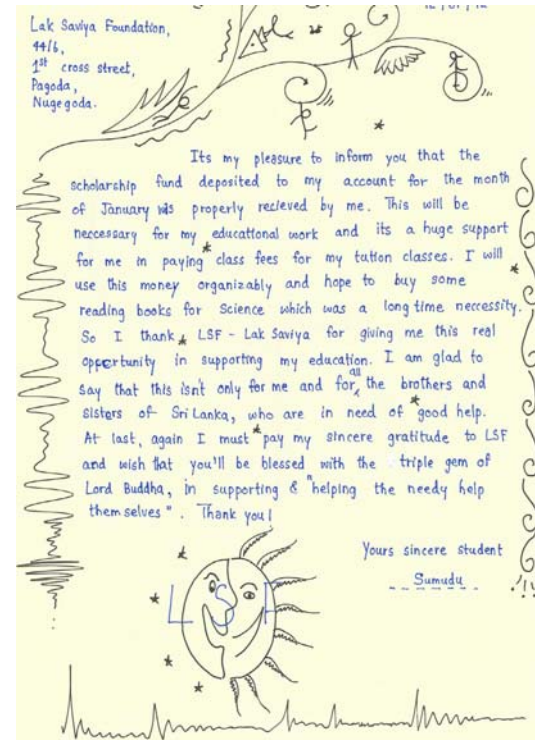 Lak Saviya Foundation,
44/6,
1st cross street,
Pagoda,
Nugegoda.
Its my pleasure to inform you that the
scholarship fund deposited to my account for the month
of January was properly recieved by me. This will be
neccessary for my educational work and its a huge support
for me in paying class fees for my tution classes. I will
use this money organizably and hope to buy some
reading books for Science which was a long time neccessity.
So I thank LSF - Lak Saviya for giving me this real
oppertunity in supporting my education. I am glad to
say that this isn't only for me and for all the brothers and
sisters of Sri Lanka, who are in need of good help.
At last, again I must pay my sincere gratitude to LSF
and wish that you'll be blessed with the triple gem of
Lord Buddha, in supporting & "helping the needy help
them selves". Thank you!
Yours sincere student
Sumudu
LSF